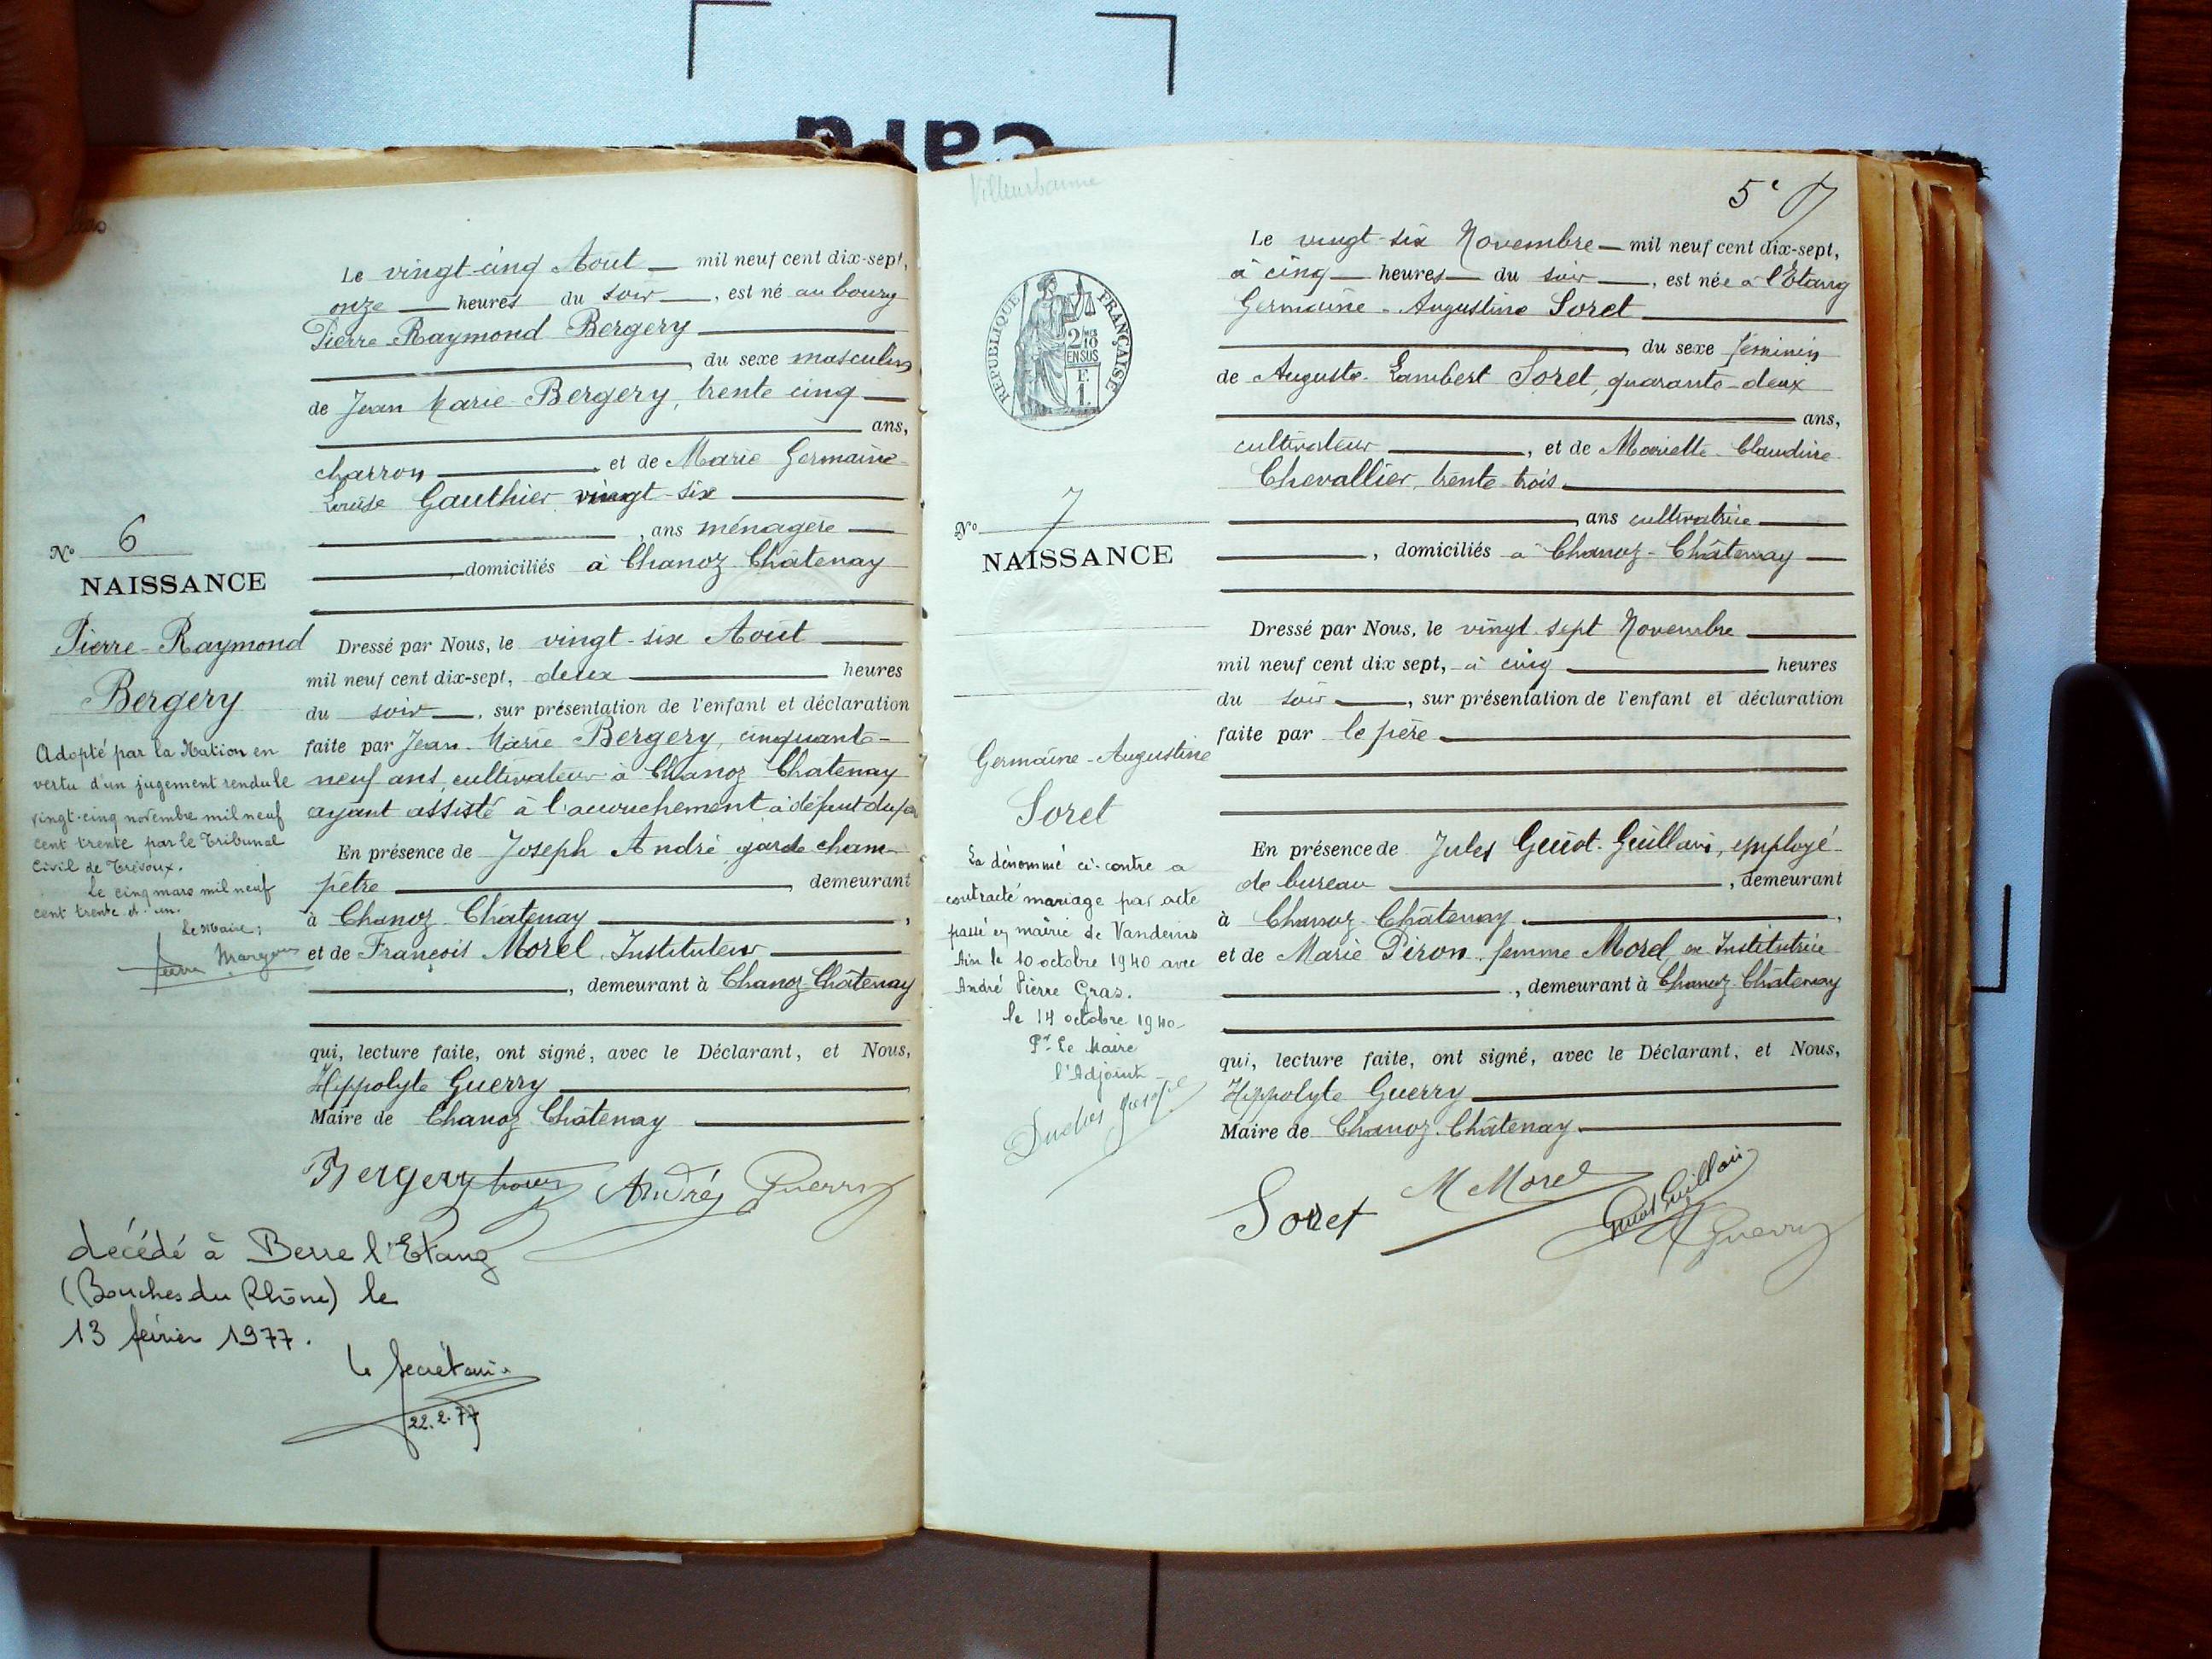 card
Le vingt-cinq Août mil neuf cent dix-sept,
onze heures du soir, est né au bourg
Pierre-Raymond Bergery
, du sexe masculin
de Jean Marie Bergery, trente cinq
ans,
charron et de Marie Germaine
Louise Gauthier vingt-six
, ans ménagère
, domiciliés à Chanoz-Châtenay
Nº 6
NAISSANCE
Pierre-Raymond
Bergery
Adopté par la Nation en
vertu d'un jugement rendu le
vingt-cinq novembre mil neuf
cent trente par le Tribunal
Civil de Trévoux.
Le cinq mars mil neuf
cent trente et un.
Le Maire,
Dressé par Nous, le vingt-six Août
mil neuf cent dix-sept, deux heures
du soir, sur présentation de l'enfant et déclaration
faite par Jean-Marie Bergery, cinquante-
neuf ans, cultivateur à Chanoz Chatenay
ayant assisté à l'accouchement à défaut du
En présence de Joseph André garde cham-
pêtre, demeurant
à Chanoz-Châtenay,
et de François Morel, Instituteur
, demeurant à Chanoz-Châtenay
qui, lecture faite, ont signé, avec le Déclarant, et Nous,
Hippolyte Guerry
Maire de Chanoz Châtenay
Bergery André Guerry
décédé à Berre l'Etang
(Bouches du Rhône) le
13 février 1977.
Le Secrétaire
22.2.77
Villeurbanne
5e 7
REPUBLIQUE FRANÇAISE
2/10 EN SUS
F.
1.
Nº 7
NAISSANCE
Germaine-Augustine
Soret
La dénommé ci-contre a
contracté mariage par acte
passé en mairie de Vandeins
Ain le 10 octobre 1940 avec
André Pierre Gras.
le 14 octobre 1940
Pr Le Maire
l'Adjoint
Le vingt-six Novembre mil neuf cent dix-sept,
à cinq heures du soir, est née à l'Etang
Germaine-Augustine Soret
, du sexe féminin
de Auguste-Lambert Soret, quarante-deux
ans,
cultivateur, et de Mariette Claudine
Chevallier, trente-trois
, ans cultivatrice
, domiciliés à Chanoz-Châtenay
Dressé par Nous, le vingt sept Novembre
mil neuf cent dix sept, à cinq heures
du soir, sur présentation de l'enfant et déclaration
faite par le père
En présence de Jules Guiot-Guillain, employé
de bureau, demeurant
à Chanoz-Châtenay,
et de Marie Piron, femme Morel, Institutrice
, demeurant à Chanoz-Châtenay
qui, lecture faite, ont signé, avec le Déclarant, et Nous,
Hippolyte Guerry
Maire de Chanoz-Châtenay
Soret M Morel
Guerry